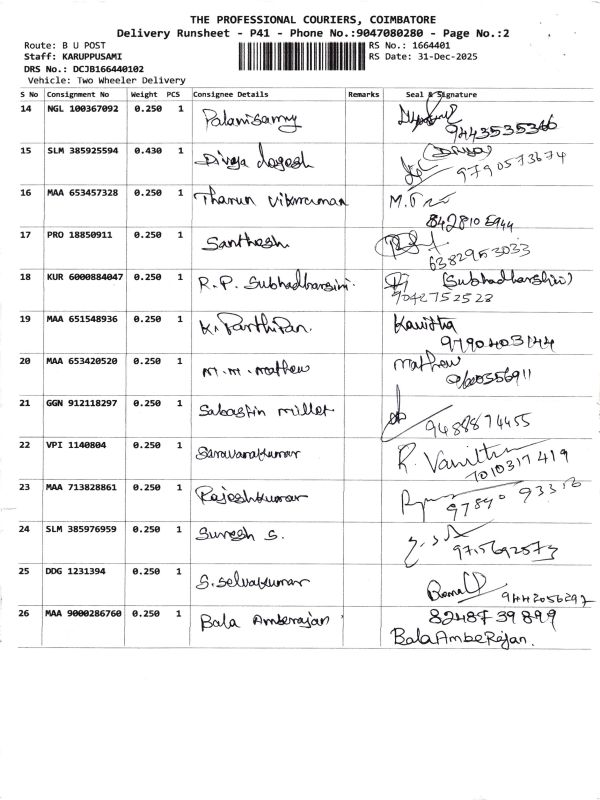 THE PROFESSIONAL COURIERS, COIMBATORE
Delivery Runsheet - P41 - Phone No.:9047080280 - Page No.:2
Route: B U POST RS No.: 1664401
Staff: KARUPPUSAMI RS Date: 31-Dec-2025
DRS No.: DCJB166440102
Vehicle: Two Wheeler Delivery
S No Consignment No Weight PCS Consignee Details Remarks Seal & Signature
14 NGL 100367092 0.250 1 Palanisamy
9443535366
15 SLM 385925594 0.430 1 Divya
9790573674
16 MAA 653457328 0.250 1 Tharun Vikraraman M.
17 PRO 18850911 0.250 1 Santhosh
6382953033
18 KUR 6000884047 0.250 1 R.P. Subhadharsini. (Subhadharshini)
9042752523
19 MAA 651548936 0.250 1 K. Parthipan. Kavitha
9790403144
20 MAA 653420520 0.250 1 M.M. Mathew Mathew
21 GGN 912118297 0.250 1 Sabastin millet
9488874455
22 VPI 1140804 0.250 1 Saravanakumar R. Vanitha
7010317419
23 MAA 713828861 0.250 1 Rajeshkumar
24 SLM 385976959 0.250 1 Suresh S.
9715692573
25 DDG 1231394 0.250 1 S. Selvakumar
9442056297
26 MAA 9000286760 0.250 1 Bala Amberajan 8248739899
BalaAmbeRajan.